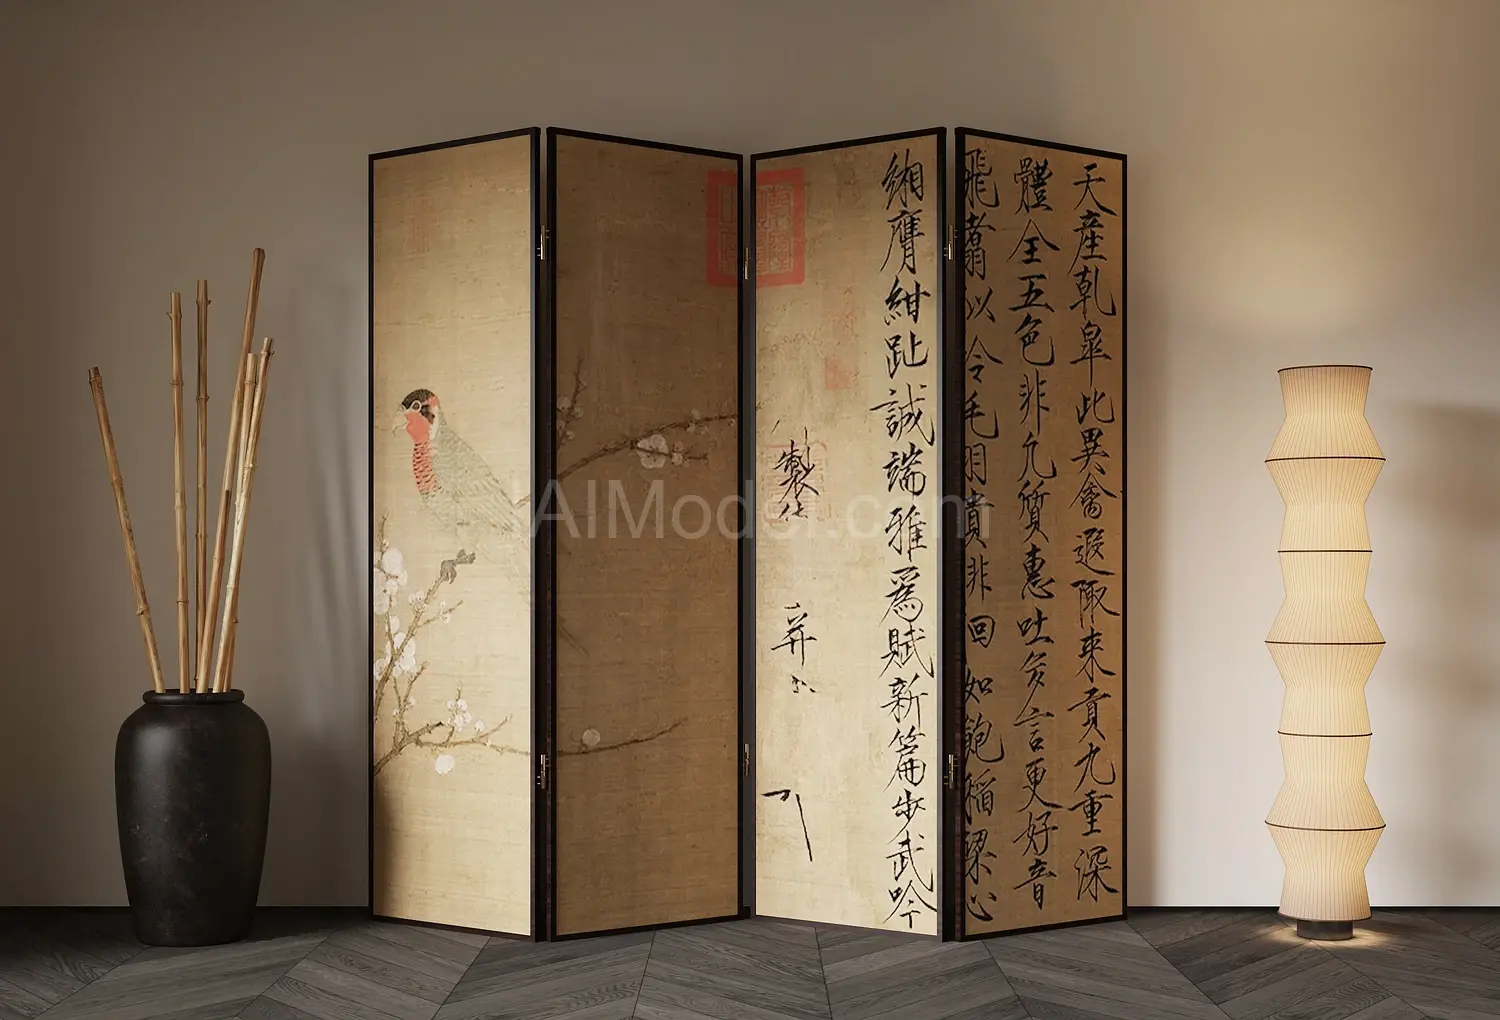 天產乾皋此異禽遐陬来貢九重深
體全五色非凡質惠吐多言更好音
飛翥似憐毛羽貴徘徊如飽稻粱心
緗膺紺趾誠端雅爲賦新篇步武吟
製
AIModel.com